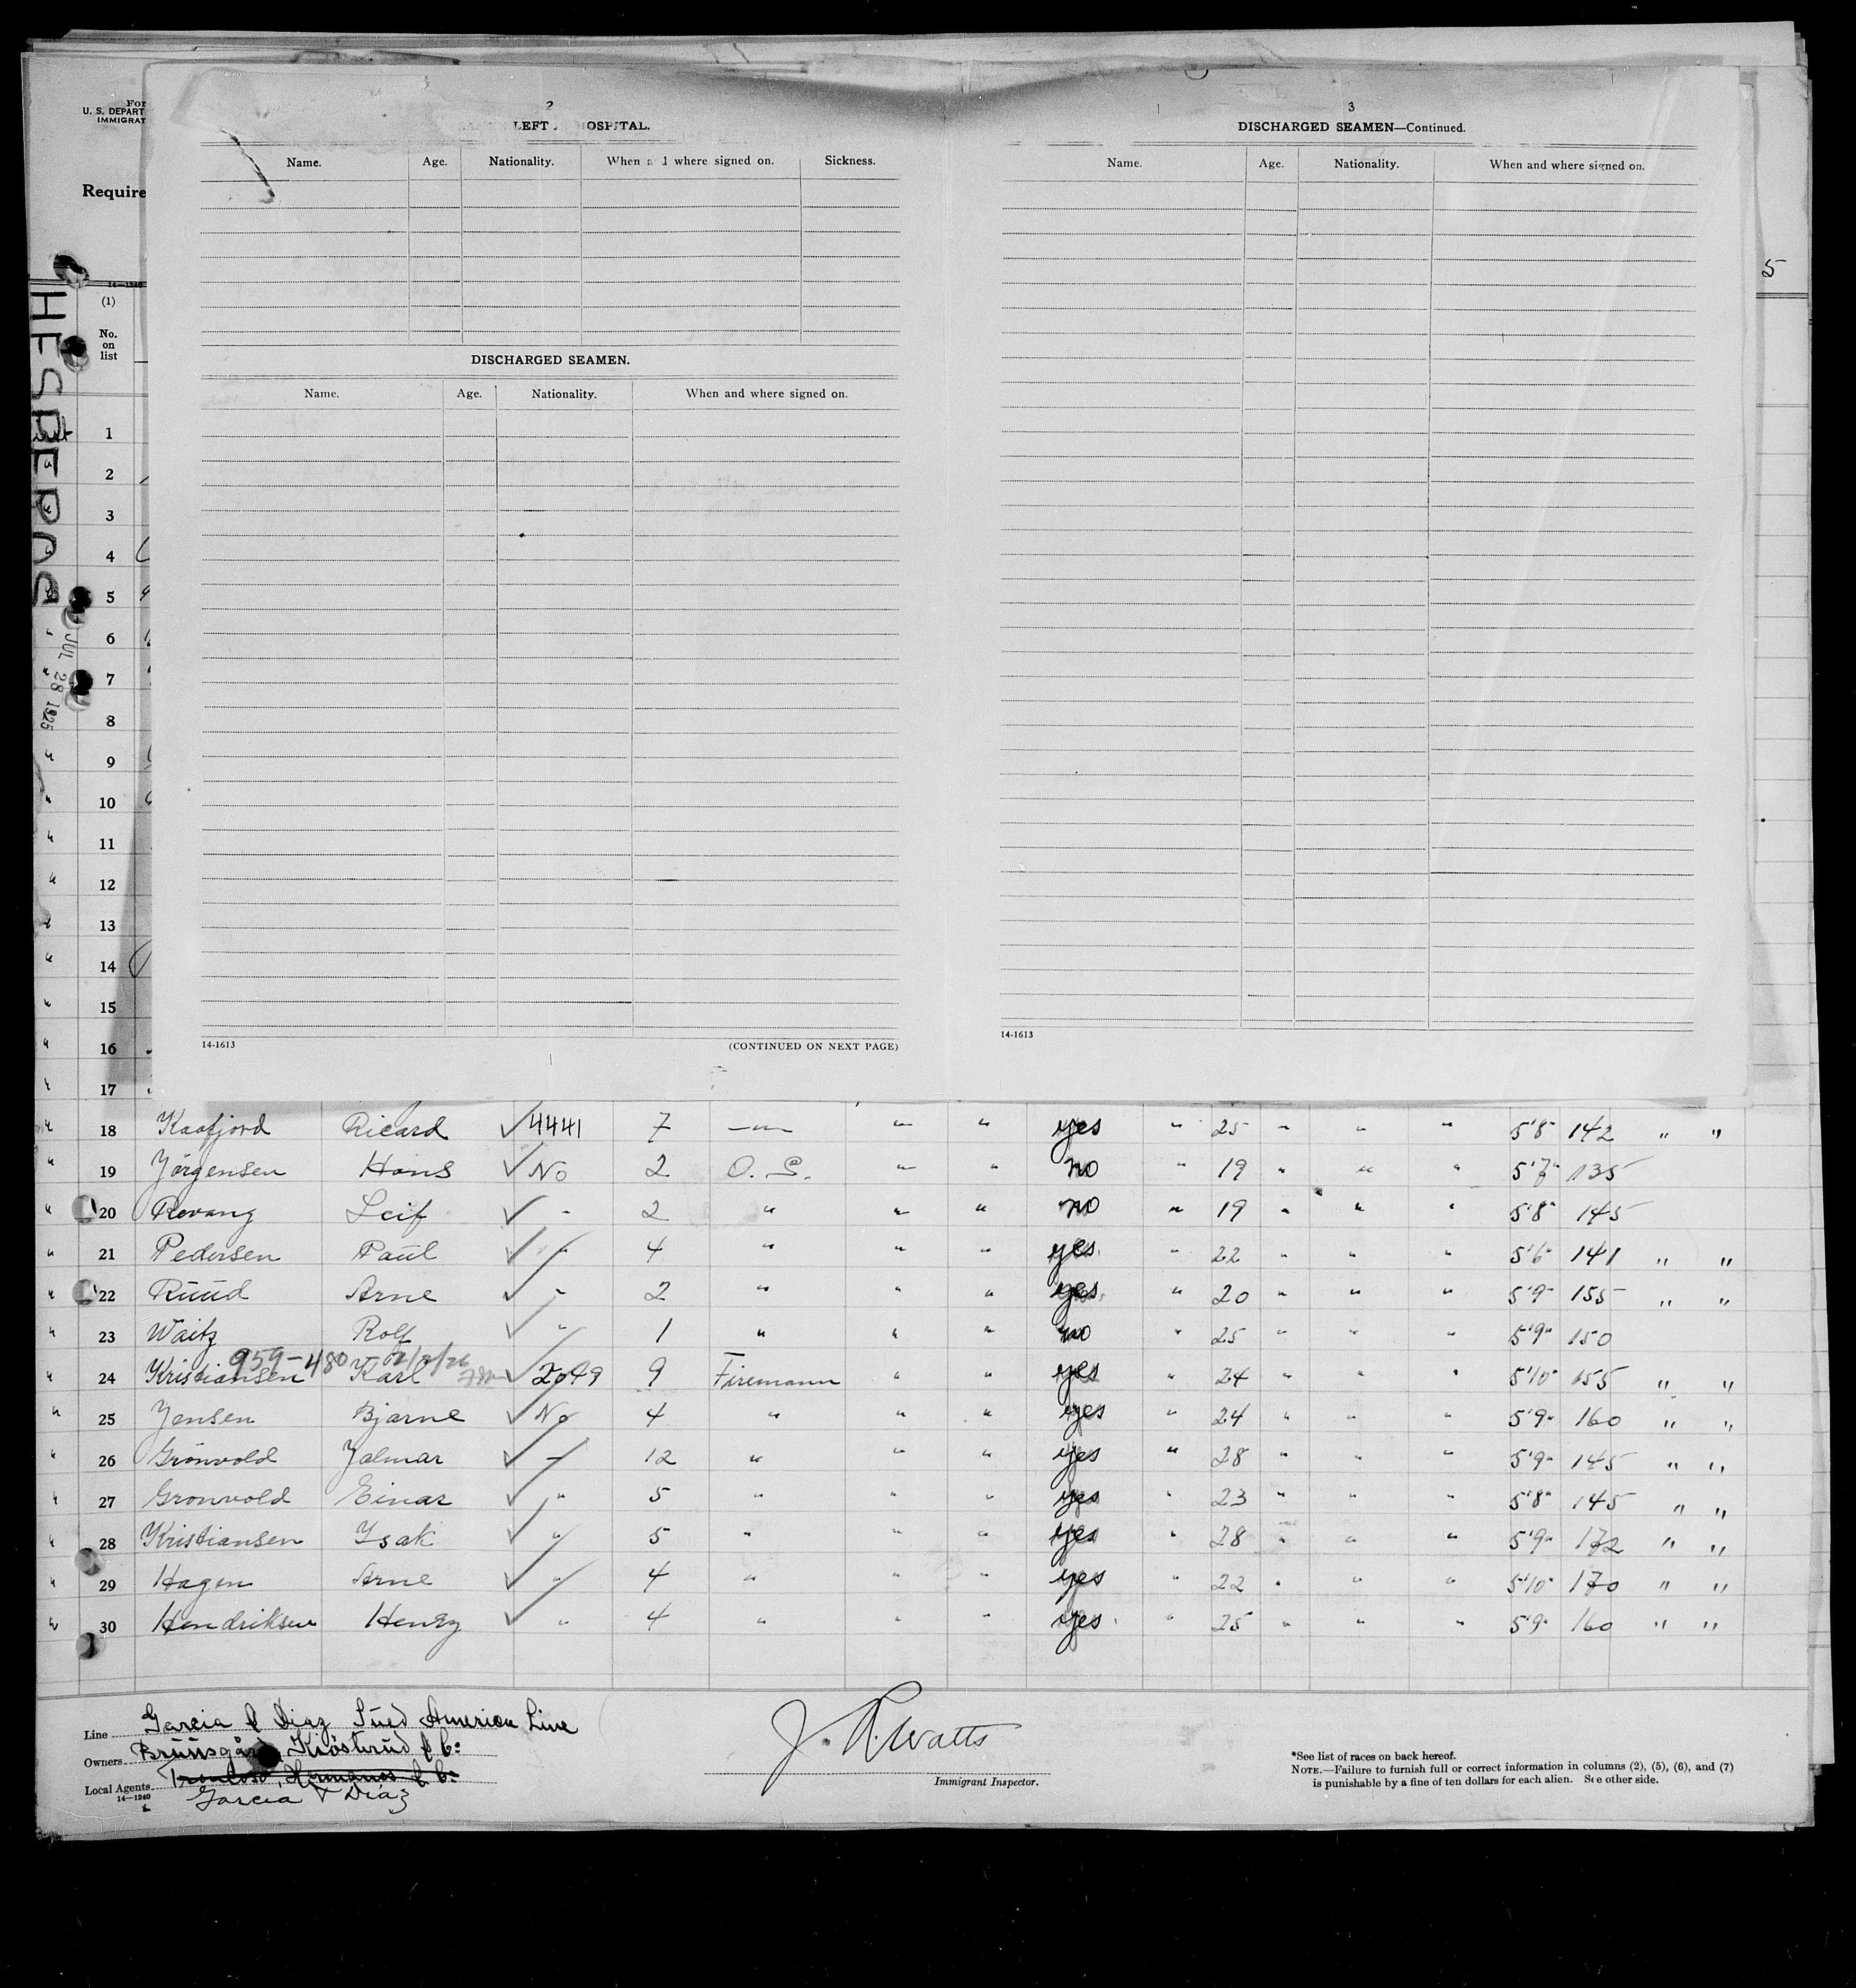 For
U. S. DEPART
IMMIGRAT
Require
14—1240
(1)
No.
on
list
HESPEROS
JUL 28 1925
5
2
LEFT OSPITAL.
Name. Age. Nationality. When a d where signed on. Sickness.
DISCHARGED SEAMEN.
Name. Age. Nationality. When and where signed on.
14-1613 (CONTINUED ON NEXT PAGE)
3
DISCHARGED SEAMEN—Continued.
Name. Age. Nationality. When and where signed on.
14-1613
1
2
3
4
5
6
7
8
9
10
11
12
13
14
15
16
17
" 18 Kaafjord Ricard ✓ 4441 7 —"— " " yes " 25 " " " 5'8" 142 " "
" 19 Jörgensen Hans ✓ No 2 O. S. " " no " 19 " " " 5'7" 135
" 20 Revang Leif ✓ " 2 " " " no " 19 " " " 5'8" 145
" 21 Pedersen Paul ✓ " 4 " " " yes " 22 " " " 5'6" 141 " "
" 22 Ruud Arne ✓ " 2 " " " yes " 20 " " " 5'9" 155 " "
" 23 Waitz Rolf ✓ " 1 " " " no " 25 " " " 5'9" 150
959-480
" 24 Kristiansen Karl ✓ 2049 9 Firemann " " yes " 24 " " " 5'10" 155 " "
" 25 Jensen Bjarne ✓ No 4 " " " yes " 24 " " " 5'9" 160 " "
" 26 Grönvold Jalmar ✓ " 12 " " " yes " 28 " " " 5'9" 145 " "
" 27 Gronvold Einar ✓ " 5 " " " yes " 23 " " " 5'8" 145 " "
" 28 Kristiansen Isak ✓ " 5 " " " yes " 28 " " " 5'9" 172 " "
" 29 Hagen Arne ✓ " 4 " " " yes " 22 " " " 5'10" 170 " "
" 30 Hendriksen Henry ✓ " 4 " " " yes " 25 " " " 5'9" 160 " "
Line Garcia & Diaz Sued America Line
Owners Bruusgård Kiösterud & Co:
Local Agents Hermanos & Co:
14—1240 Garcia & Diaz
J. R. Watts
Immigrant Inspector.
*See list of races on back hereof.
NOTE.—Failure to furnish full or correct information in columns (2), (5), (6), and (7)
is punishable by a fine of ten dollars for each alien. See other side.